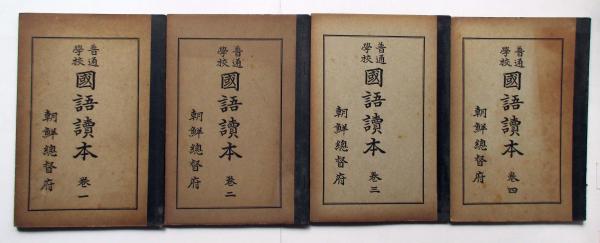 普通學校
國語讀本 卷一
朝鮮總督府
普通學校
國語讀本 卷二
朝鮮總督府
普通學校
國語讀本 卷三
朝鮮總督府
普通學校
國語讀本 卷四
朝鮮總督府